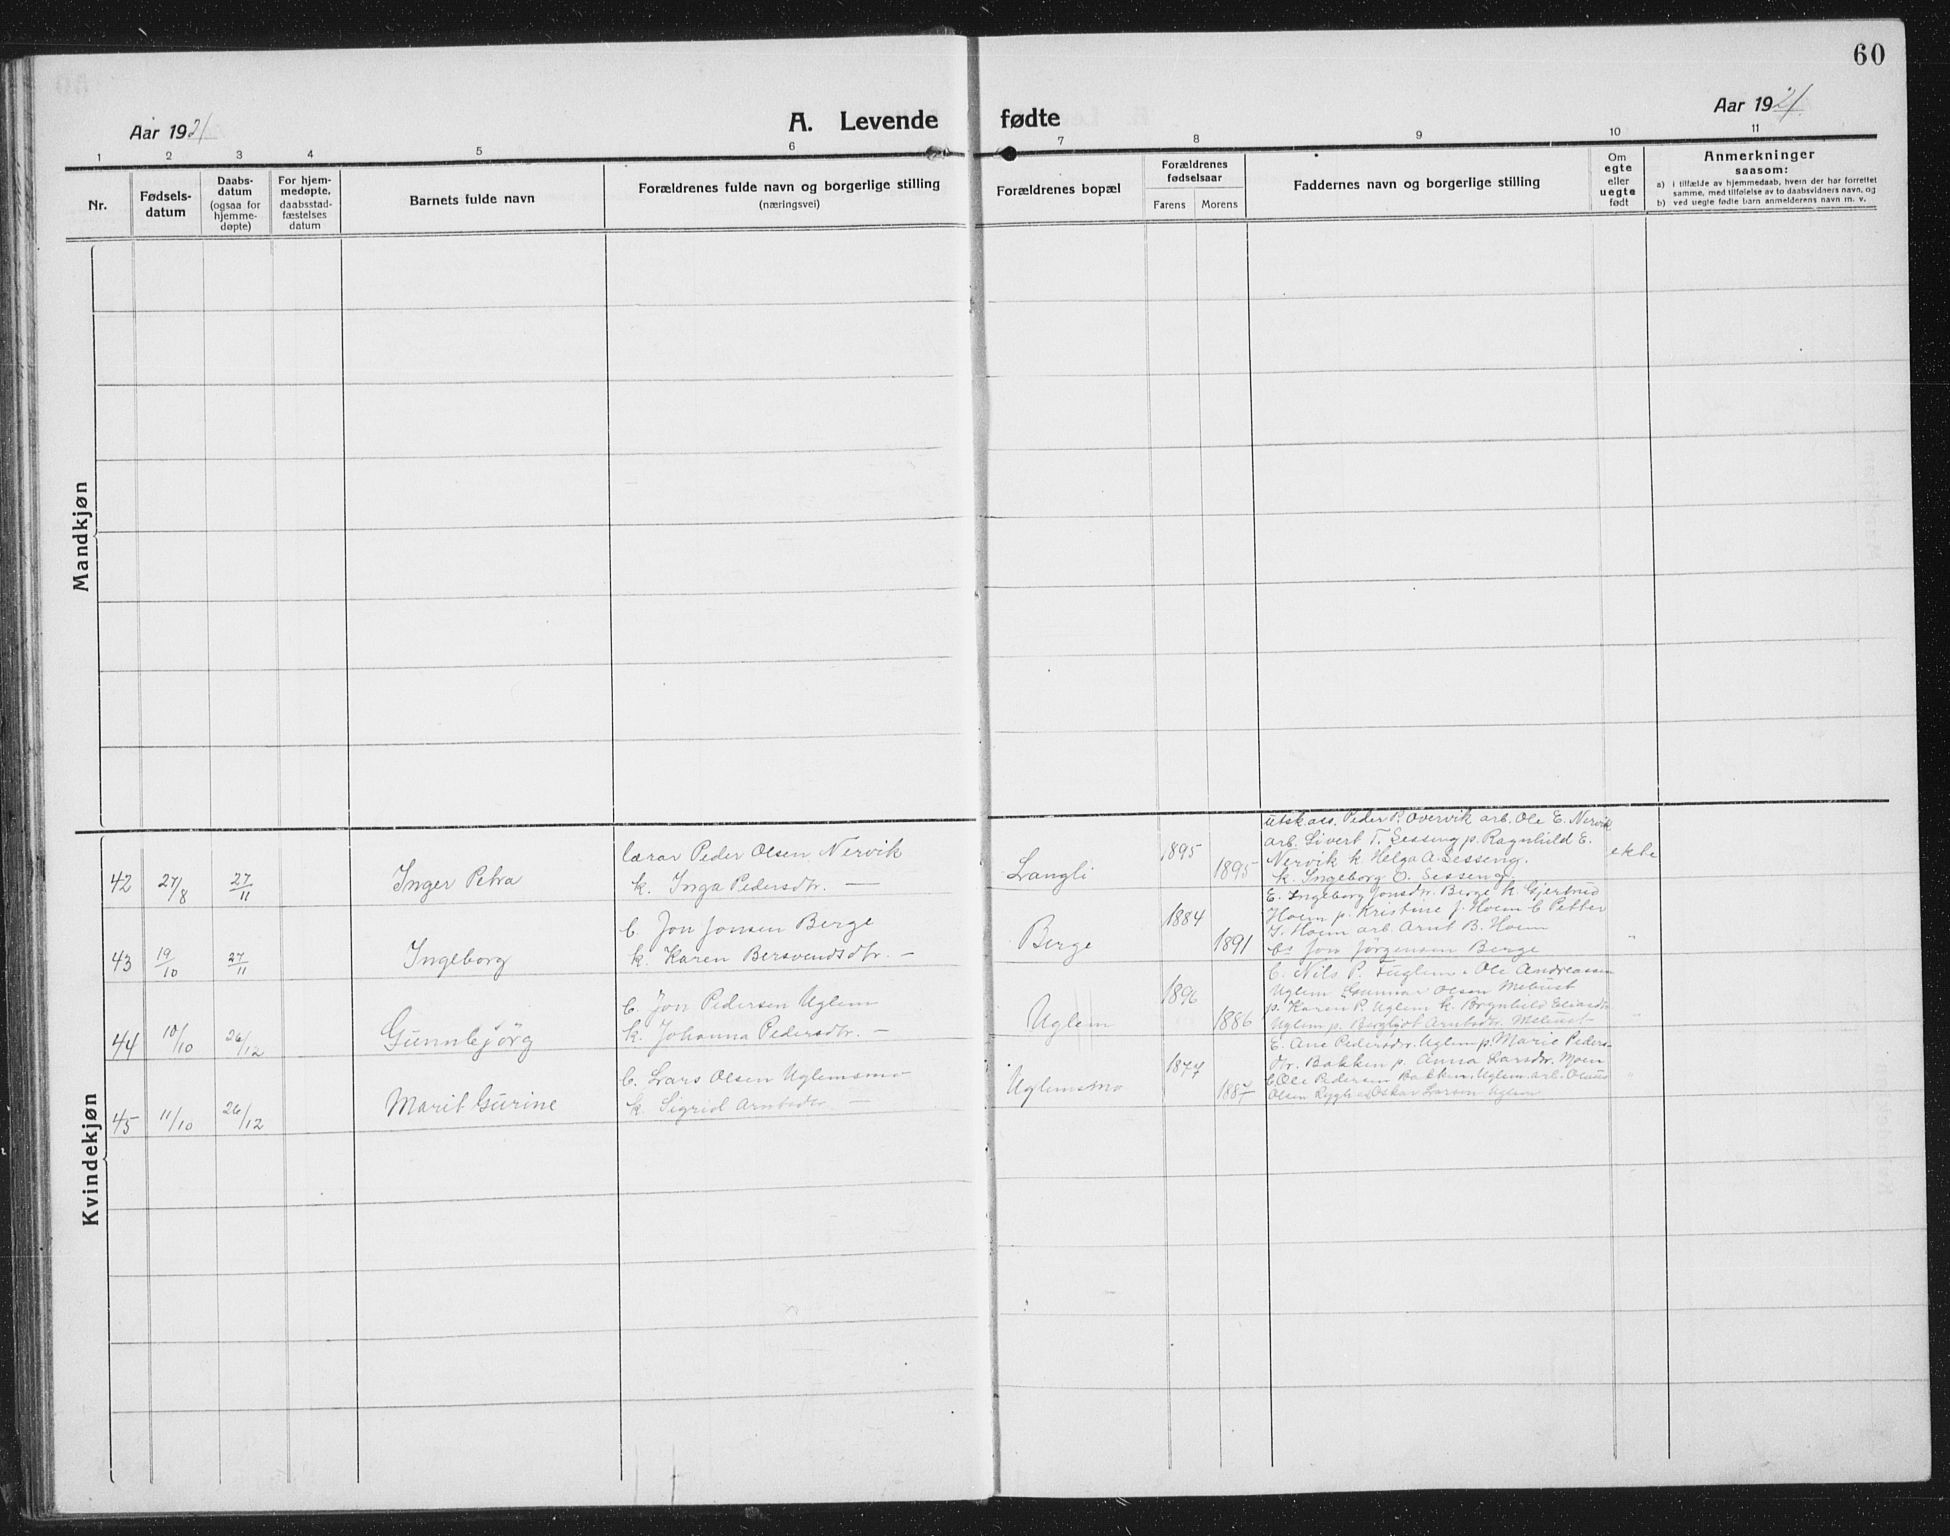 60
Aar 1921
A. Levende fødte
Aar 1921
1 2 3 4 5 6 7 8 9 10 11
Nr.
Fødsels-
datum
Daabs-
datum
(ogsaa for
hjemme-
døpte)
For hjem-
medøpte,
daabsstad-
fæstelses
datum
Barnets fulde navn
Forældrenes fulde navn og borgerlige stilling
(næringsvei)
Forældrenes bopæl
Forældrenes
fødselsaar
Farens Morens
Faddernes navn og borgerlige stilling
Om
egte
eller
uegte
født
Anmerkninger
saasom:
a) i tilfælde av hjemmedaab, hvem der har forrettet
samme, med tilføielse av to daabsvidners navn, og
b) ved uegte fødte barn anmelderens navn m. v.
Mandkjøn
Kvindekjøn
42 27/8 27/11 Inger Petra
lærar Peder Olsen Nervik
k. Inga Pedersdtr. —
Langli 1895 1895
utsk.ass. Peder P. Overvik arb. Ole E. Nervik
arb. Sivert T. Sesseng p. Ragnhild E.
Nervik k. Helga A. Sesseng.
k. Ingeborg O. Sesseng.
ekte
43 19/10 27/11 Ingeborg
G. Jon Jonsen Berge
k. Karen Bersvendsdtr. —
Berge 1884 1891
E. Ingeborg Jonsdtr. Berge k. Gjertrud
Hoem p. Kristine J. Hoem G. Petter
J. Hoem arb. Arnt B. Hoem
Jon Jørgensen Berge
"
44 10/10 26/12 Gunnbjörg
G. Jon Pedersen Uglem
k. Johanna Pedersdtr. —
Uglem 1896 1886
G. Nils P. Fuglem. Ole Andreassen
Uglem Gunnar Olsen Mebust
p. Karen P. Uglem k. Borgnhild
Uglem p. Bergljot Arntsdtr. Mebust
"
45 11/10 26/12 Marit Gurine
G. Lars Olsen Uglemsmo
k. Sigrid Arntsdtr —
Uglemsmo 1877 1887
E. Ane Pedersdtr. Uglem p. Marie Peders-
dtr. Bakken p. Anna Larsdtr. Moen
G. Ole Pedersen Bakken, Uglem arb. Olaus
Olsen Oskar Larsen Uglem
"